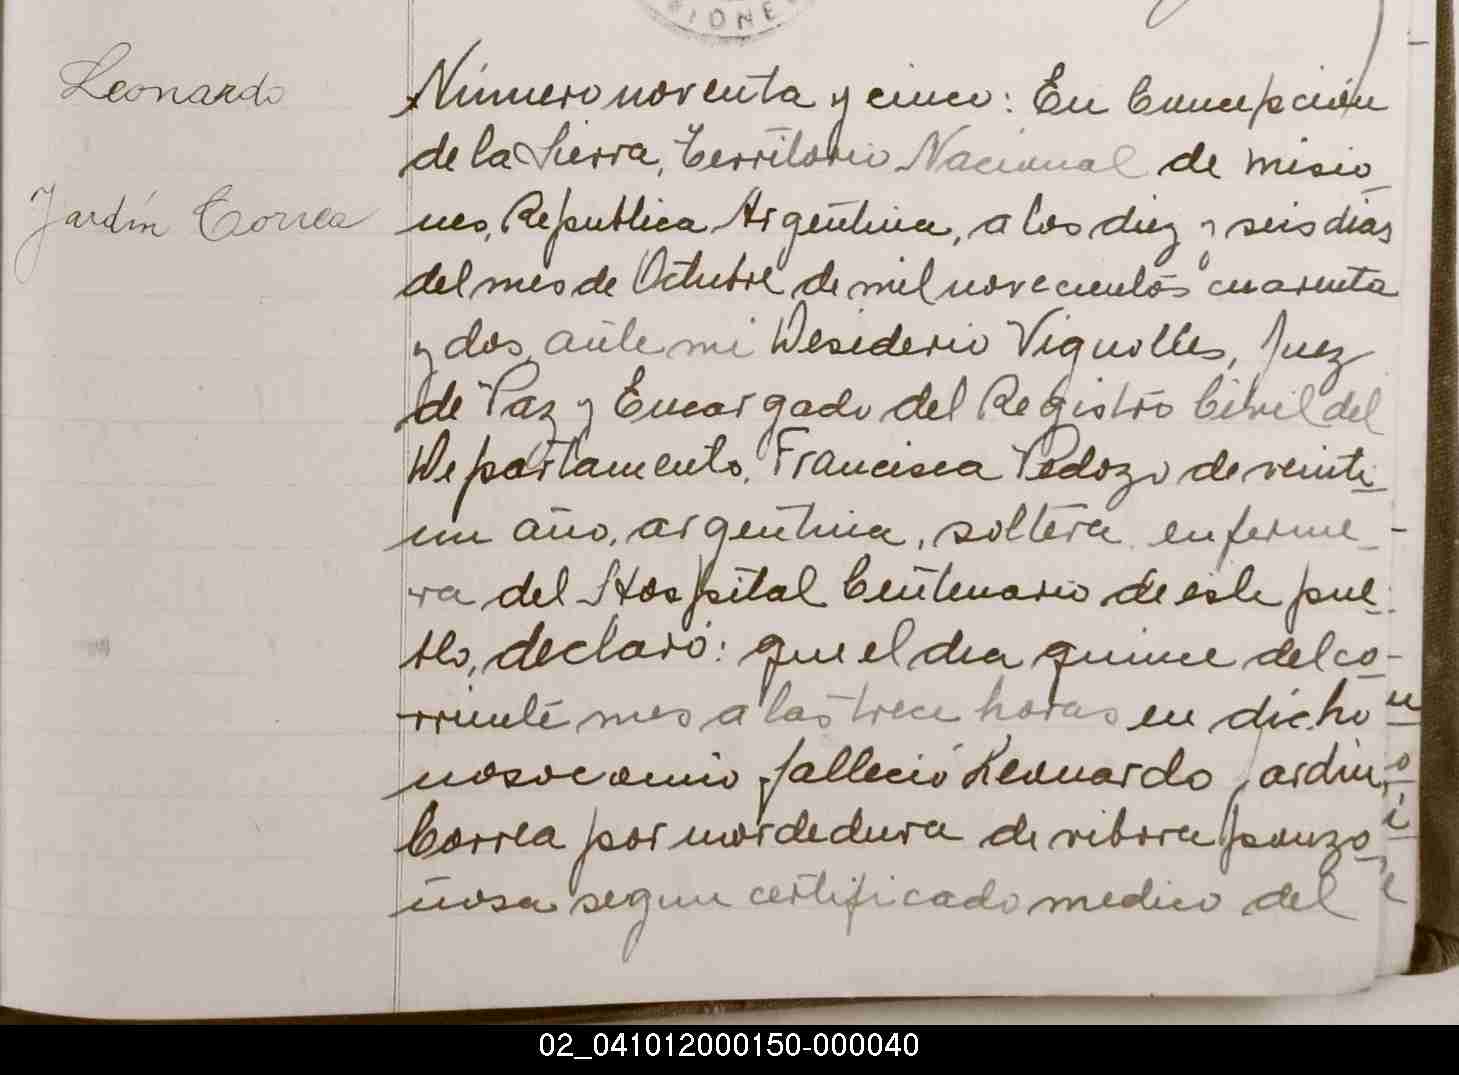 IONE
Leonardo
Jardín Correa
Número noventa y cinco: En Concepción
de la Sierra, Territorio Nacional de Misio
nes, Republica Argentina, a los diez y seis dias
del mes de Octubre de mil novecientos cuarenta
y dos, ante mi Desiderio Vignolles, Juez
de Paz y Encargado del Registro Civil del
Departamento, Francisca Pedozo de veinti
un año, argentina, soltera, enferme-
ra del Hospital Centenario de este pue-
blo, declaró: que el dia quince del co-
rriente mes a las trece horas en dicho
nosocomio falleció Leonardo Jardin
Correa por mordedura de vibora ponzo
ñosa segun certificado medico del
02_041012000150-000040